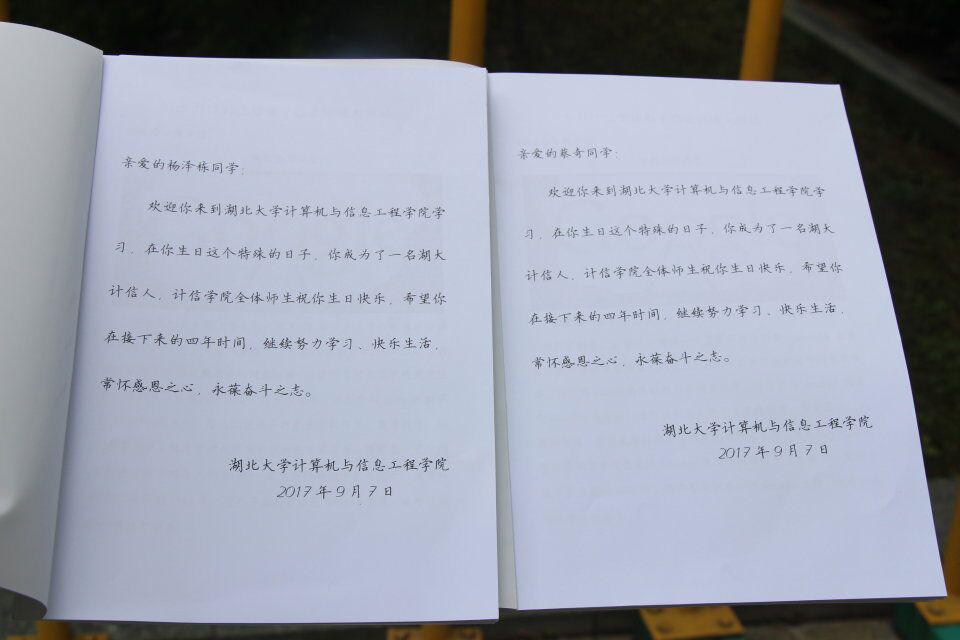 亲爱的杨泽栋同学：
欢迎你来到湖北大学计算机与信息工程学院学
习，在你生日这个特殊的日子，你成为了一名湖大
计信人，计信学院全体师生祝你生日快乐，希望你
在接下来的四年时间，继续努力学习、快乐生活，
常怀感恩之心，永葆奋斗之志。
湖北大学计算机与信息工程学院
2017年9月7日
亲爱的蔡奇同学：
欢迎你来到湖北大学计算机与信息工程学院学
习，在你生日这个特殊的日子，你成为了一名湖大
计信人，计信学院全体师生祝你生日快乐，希望你
在接下来的四年时间，继续努力学习、快乐生活，
常怀感恩之心，永葆奋斗之志。
湖北大学计算机与信息工程学院
2017年9月7日